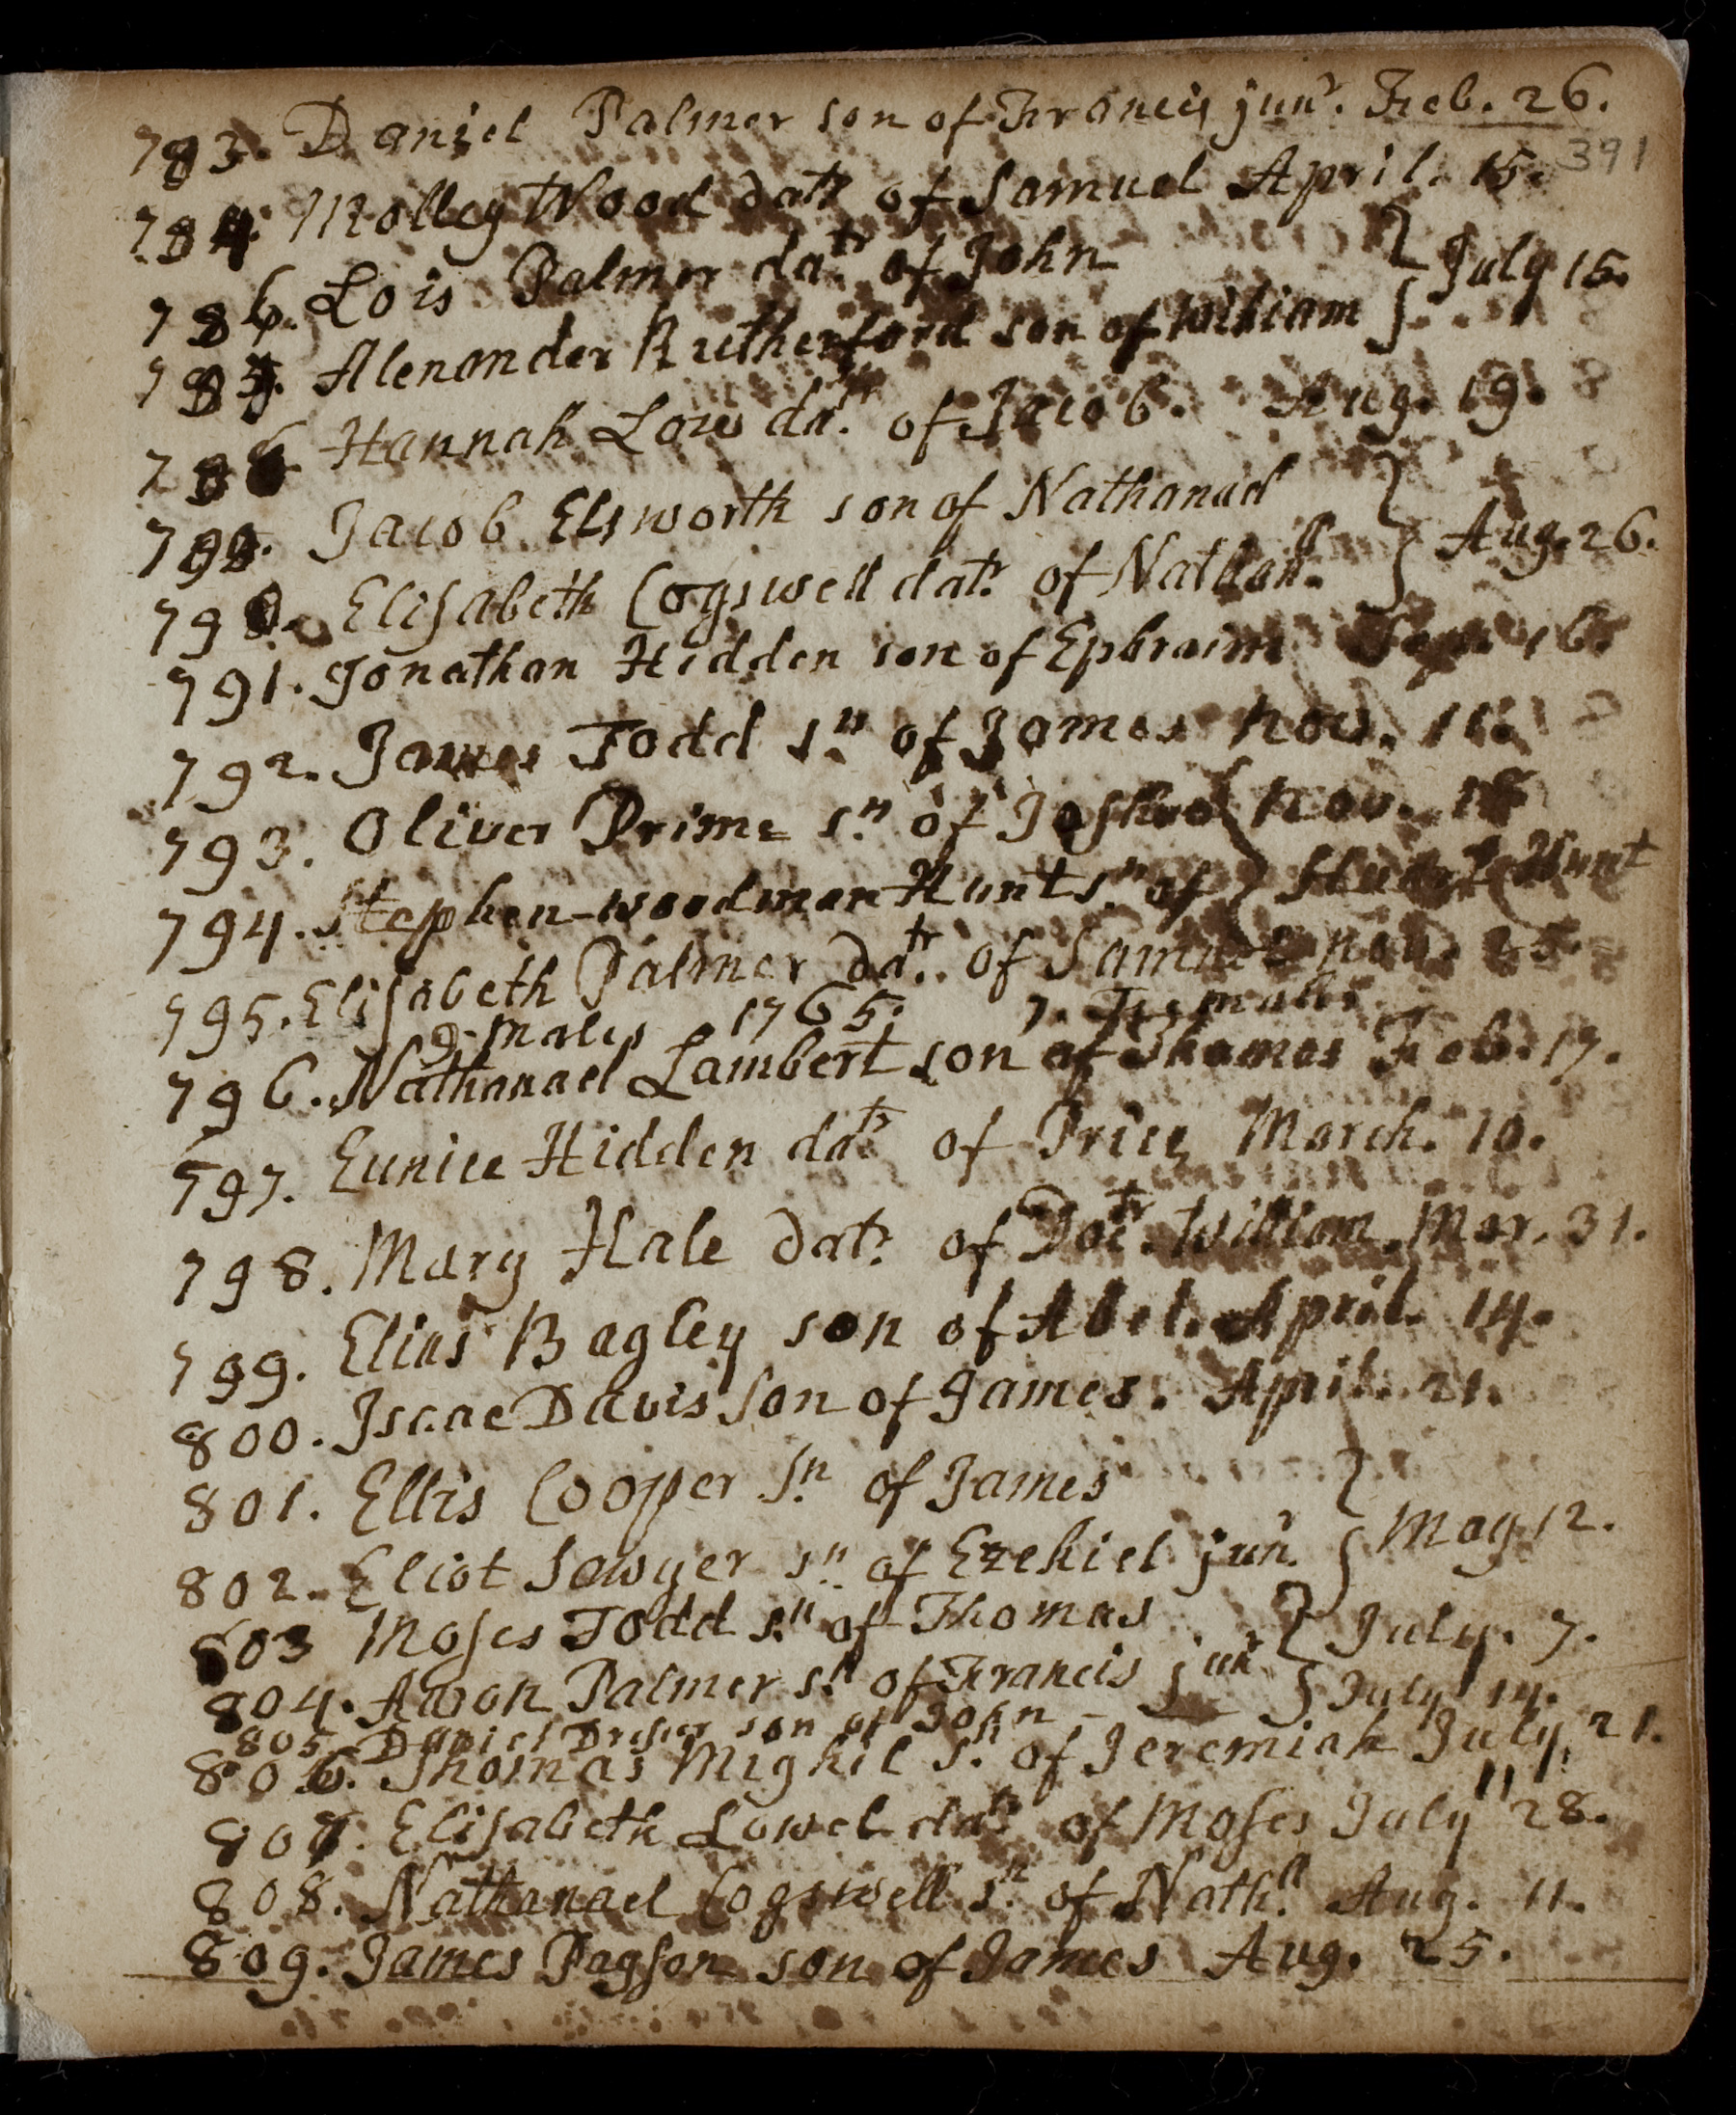 783. Daniel Palmer son of Francis junr. Feb. 26.
391
784. Molley Wood datr of Samuel April. 15.
786. Lois Palmer datr. of John } July 15.
787. Alexander Rutherford son of William
788. Hannah Low datr. of Jacob. Aug. 19.
789. Jacob Elsworth son of Nathanael } Aug. 26.
790. Elisabeth Cogswell datr. of Nathan.ll
791. Jonathan Hidden son of Ephraim Sep. 16.
792. James Todd s.n of James Nov. 11.
793. Oliver Prime s.n of Joshua } Nov. 18
794. Stephen-woodman Hunt s.n of } Hunt
795. Elisabeth Palmer datr. of Samuel Nov. 25.
9. males 1765. 7. Females
796. Nathanael Lambert son of Thomas Feb. 17.
797. Eunice Hidden datr. of Price March. 10.
798. Mary Hale datr. of Doctr. William. Mar. 31.
799. Elias Bagley son of Abel. April. 14.
800. Isaac Davis son of James. April. 21.
801. Ellis Cooper S.n of James } May 12.
802. Eliot Sawyer s.n of Ezekiel junr.
803 Moses Todd s.n of Thomas } July. 7.
804. Aaron Palmer s.n of Francis junr } July 14.
805. Daniel Dresser son of John -
806. Thomas Mighil s.n of Jeremiah July 21.
807. Elisabeth Lowel datr of Moses July 28.
808. Nathanael Cogswell s.n of Nath.ll Aug. 11.
809. James Payson son of James Aug. 25.